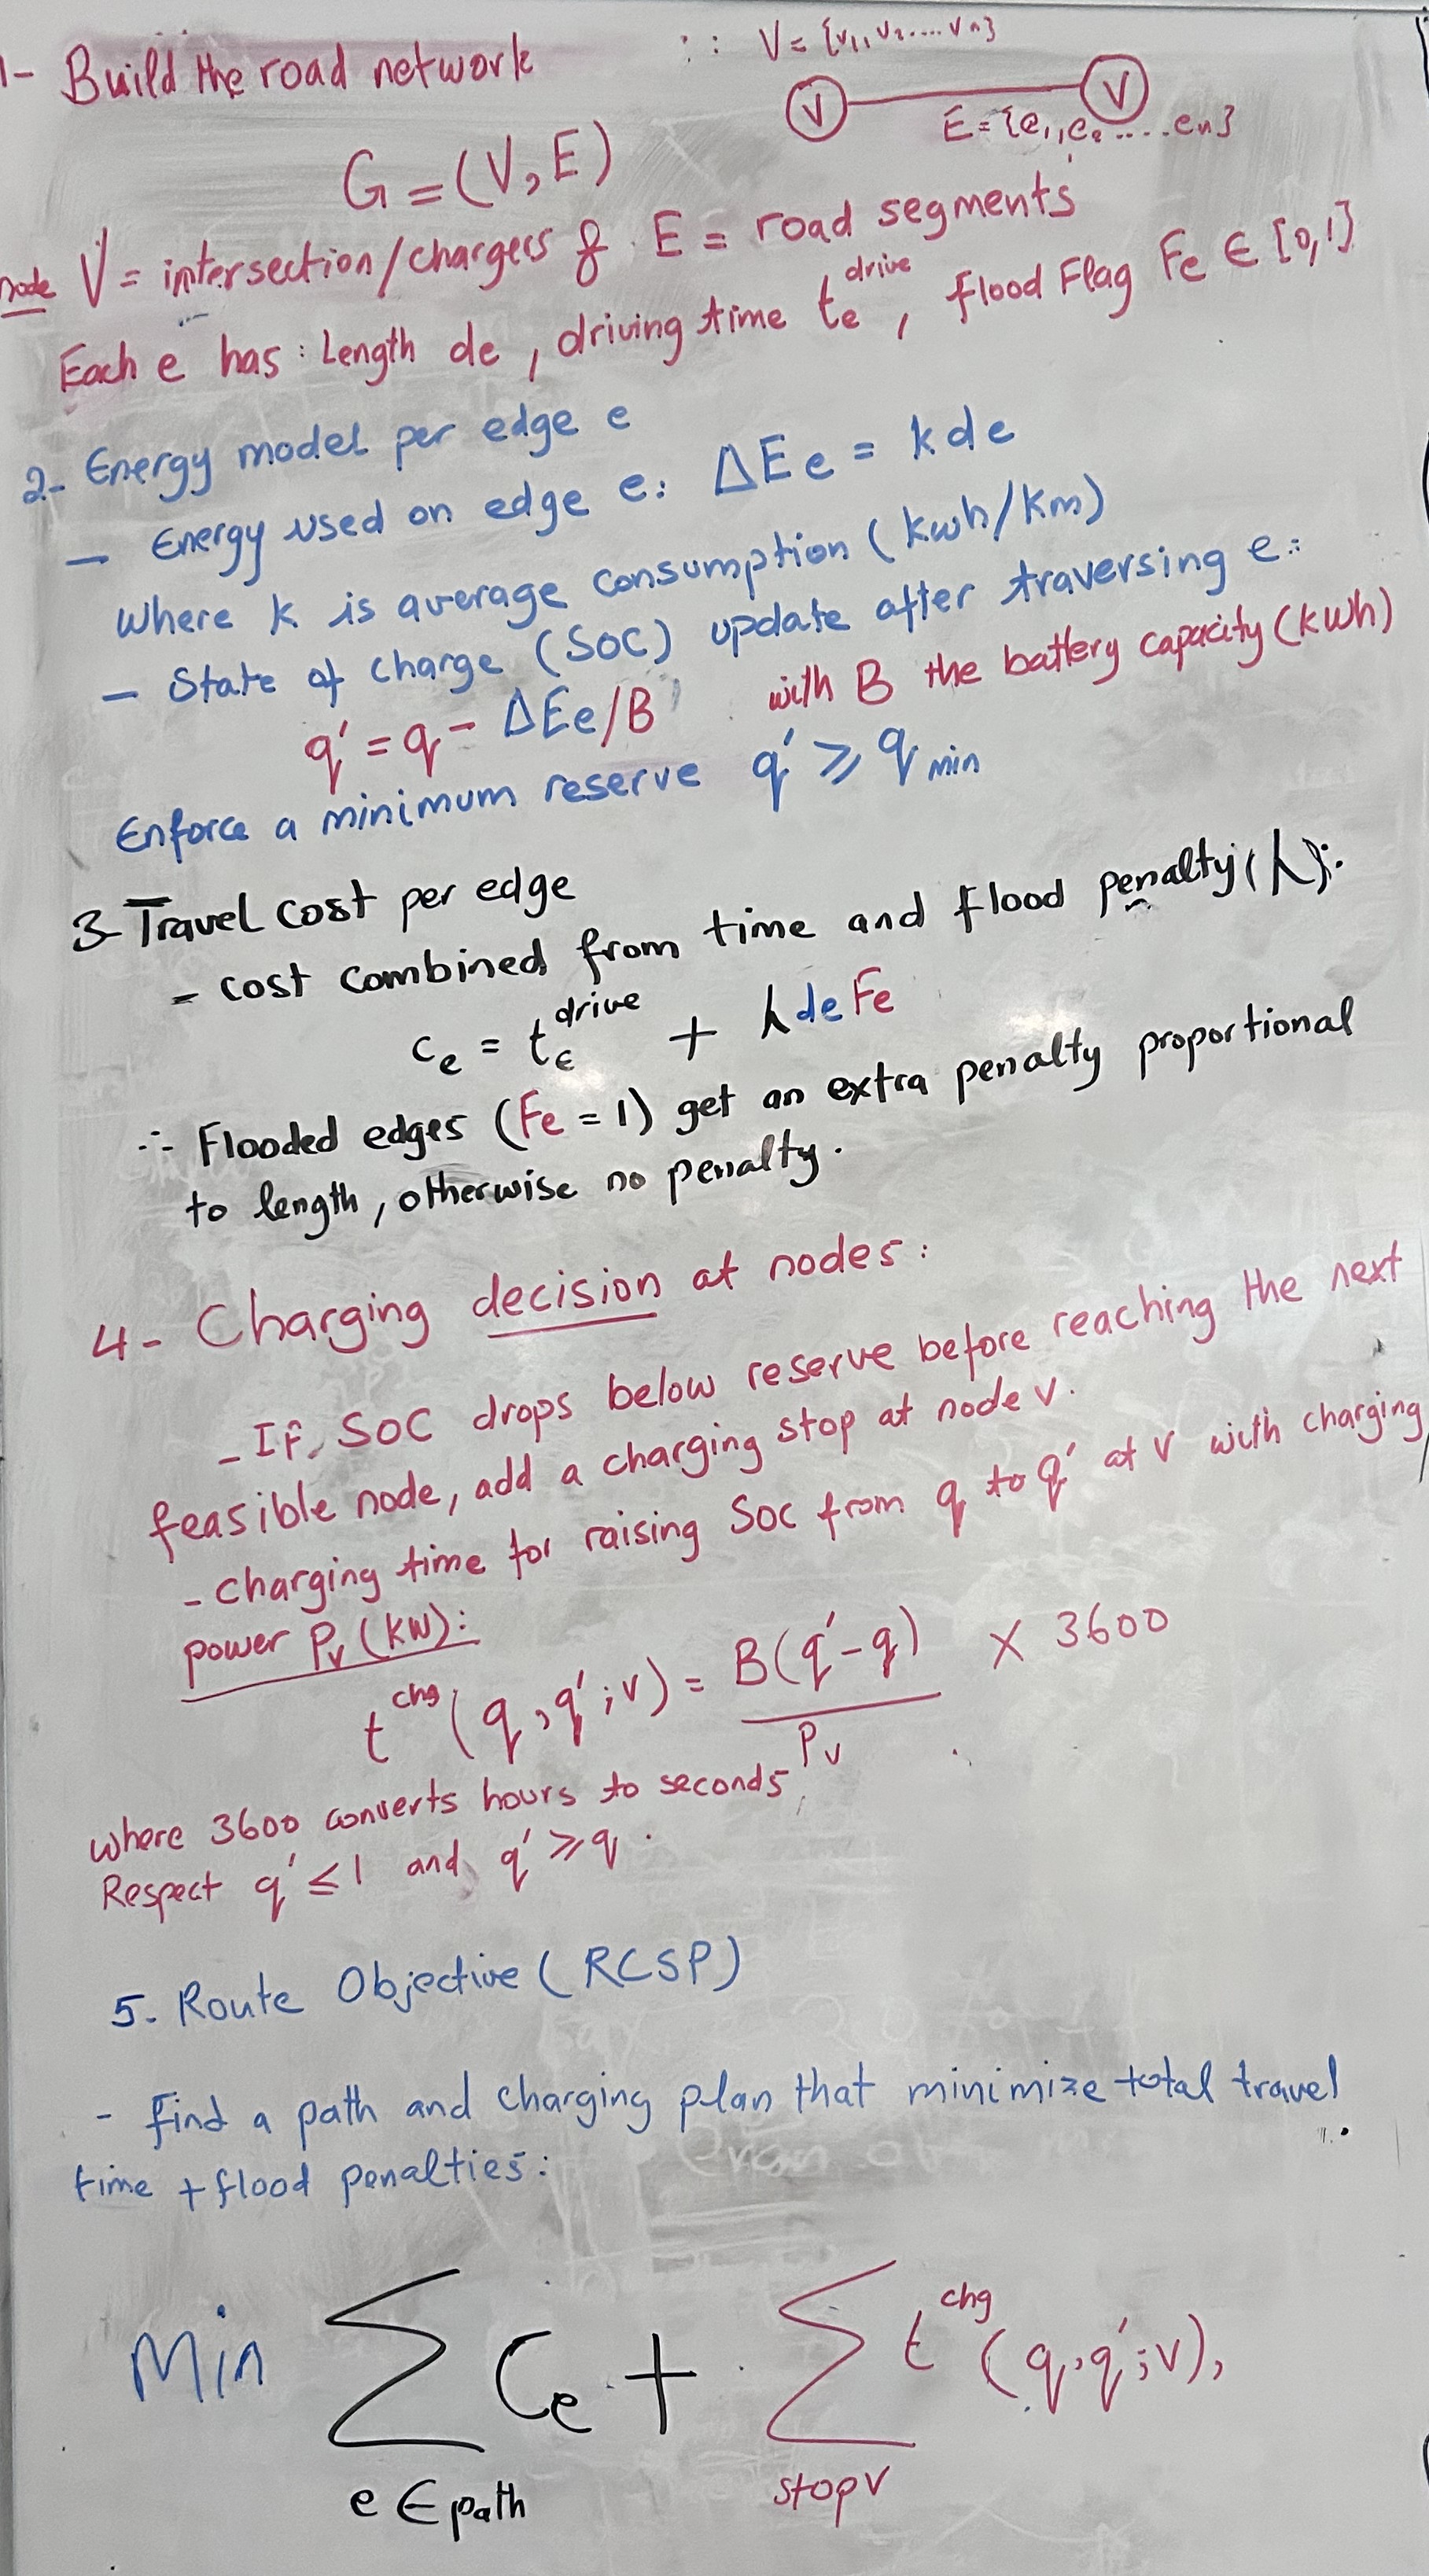 1- Build the road network
∴ V = {v1, v2.... vn}
V V
E = {e1, e2 ..... en}
G = (V, E)
node V = intersection/chargers & E = road segments
Each e has : Length de , driving time te^drive , flood Flag Fe ∈ [0,1]
2- Energy model per edge e
- Energy used on edge e: ΔEe = kde
where k is average consumption (kwh/km)
- State of charge (SOC) update after traversing e:
q' = q - ΔEe/B with B the battery capacity (kwh)
Enforce a minimum reserve q' ⩾ qmin
3- Travel cost per edge
- cost combined from time and flood penalty (λ):
ce = te^drive + λdeFe
∴ Flooded edges (Fe = 1) get an extra penalty proportional
to length, otherwise no penalty.
4- Charging decision at nodes:
- If SOC drops below reserve before reaching the next
feasible node, add a charging stop at node v.
- charging time for raising SOC from q to q' at v with charging
power Pv (kW):
t^chg (q, q'; v) = B(q'-q) / Pv × 3600
where 3600 converts hours to seconds.
Respect q' ⩽ 1 and q' ⩾ q.
5. Route Objective (RCSP)
- find a path and charging plan that minimize total travel
time + flood penalties:
Min ∑ Ce + ∑ t^chg (q, q'; v),
e ∈ path stop v